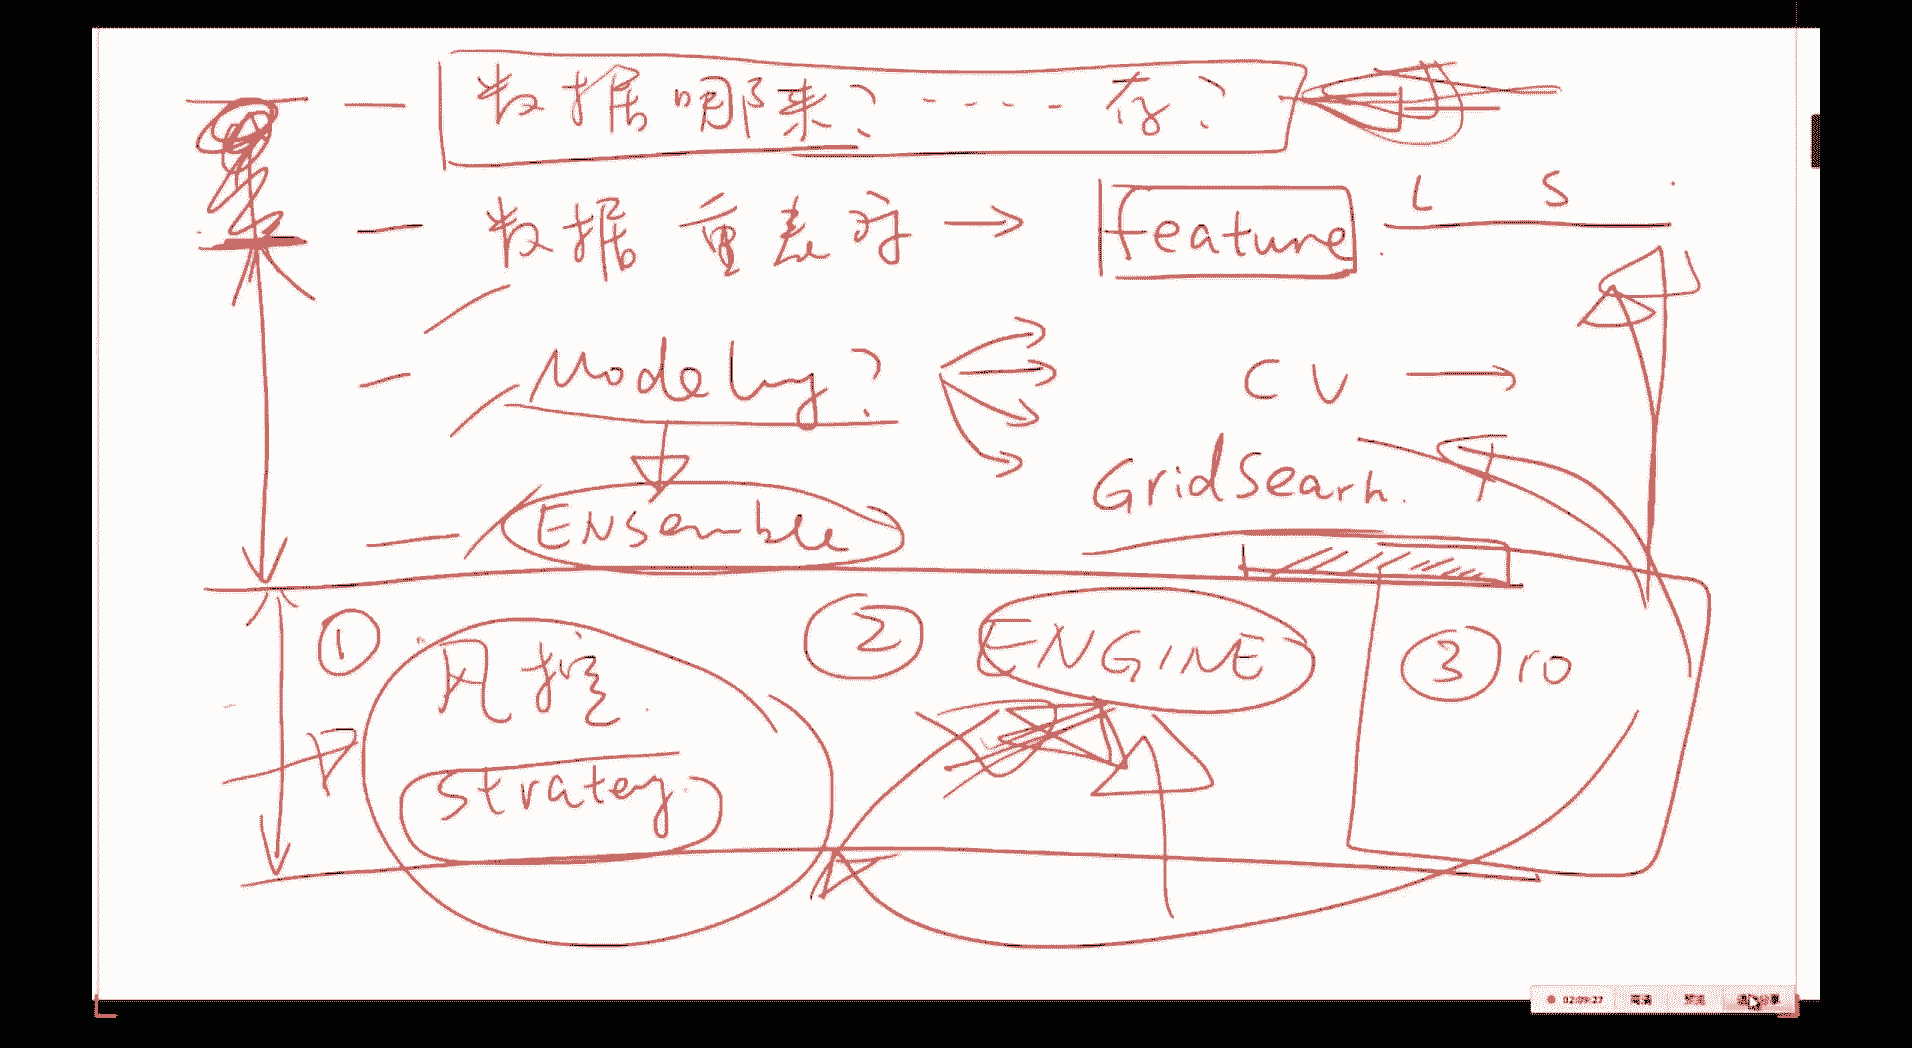 数据哪来? ---- 存?
数据重表时 → feature
L S
Modeling?
CV →
GridSearh.
ENsemble
① 风控
strategy
② ENGINE
③ ro
02:09:27